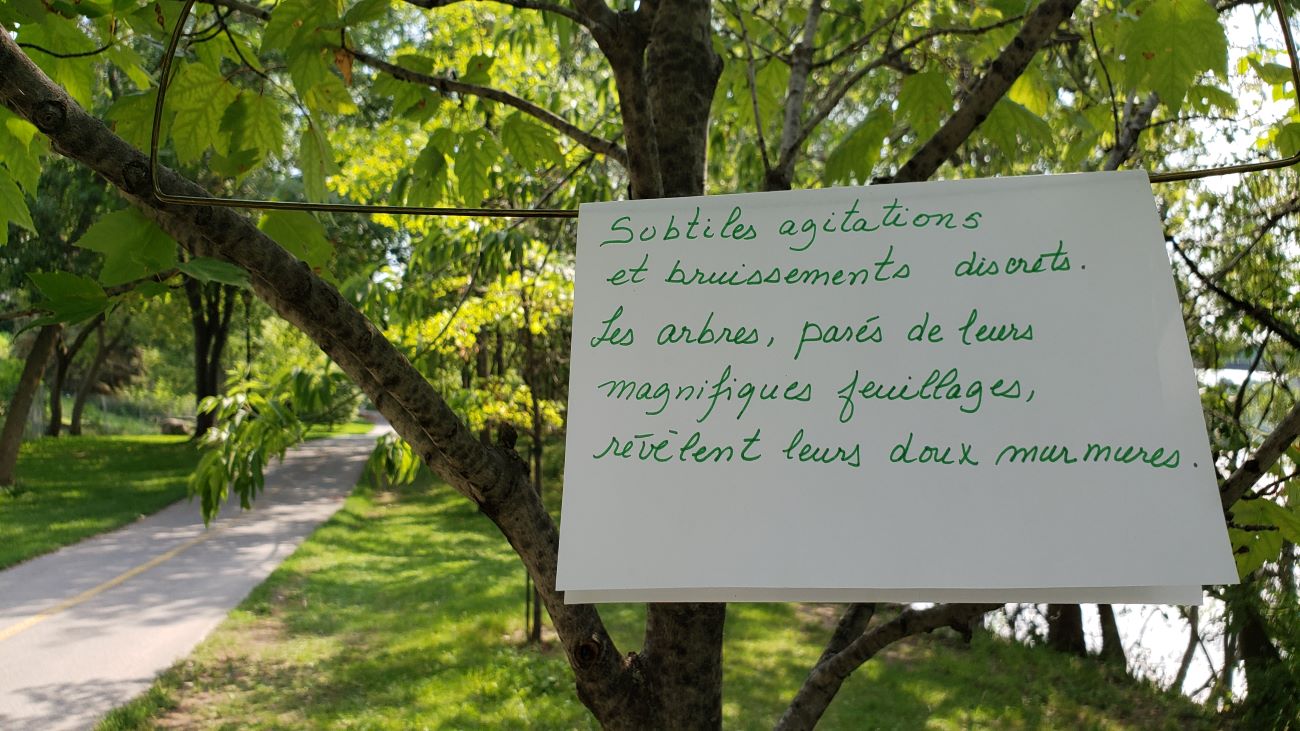 Subtiles agitations
et bruissements discrets.
Les arbres, parés de leurs
magnifiques feuillages,
révèlent leurs doux murmures.